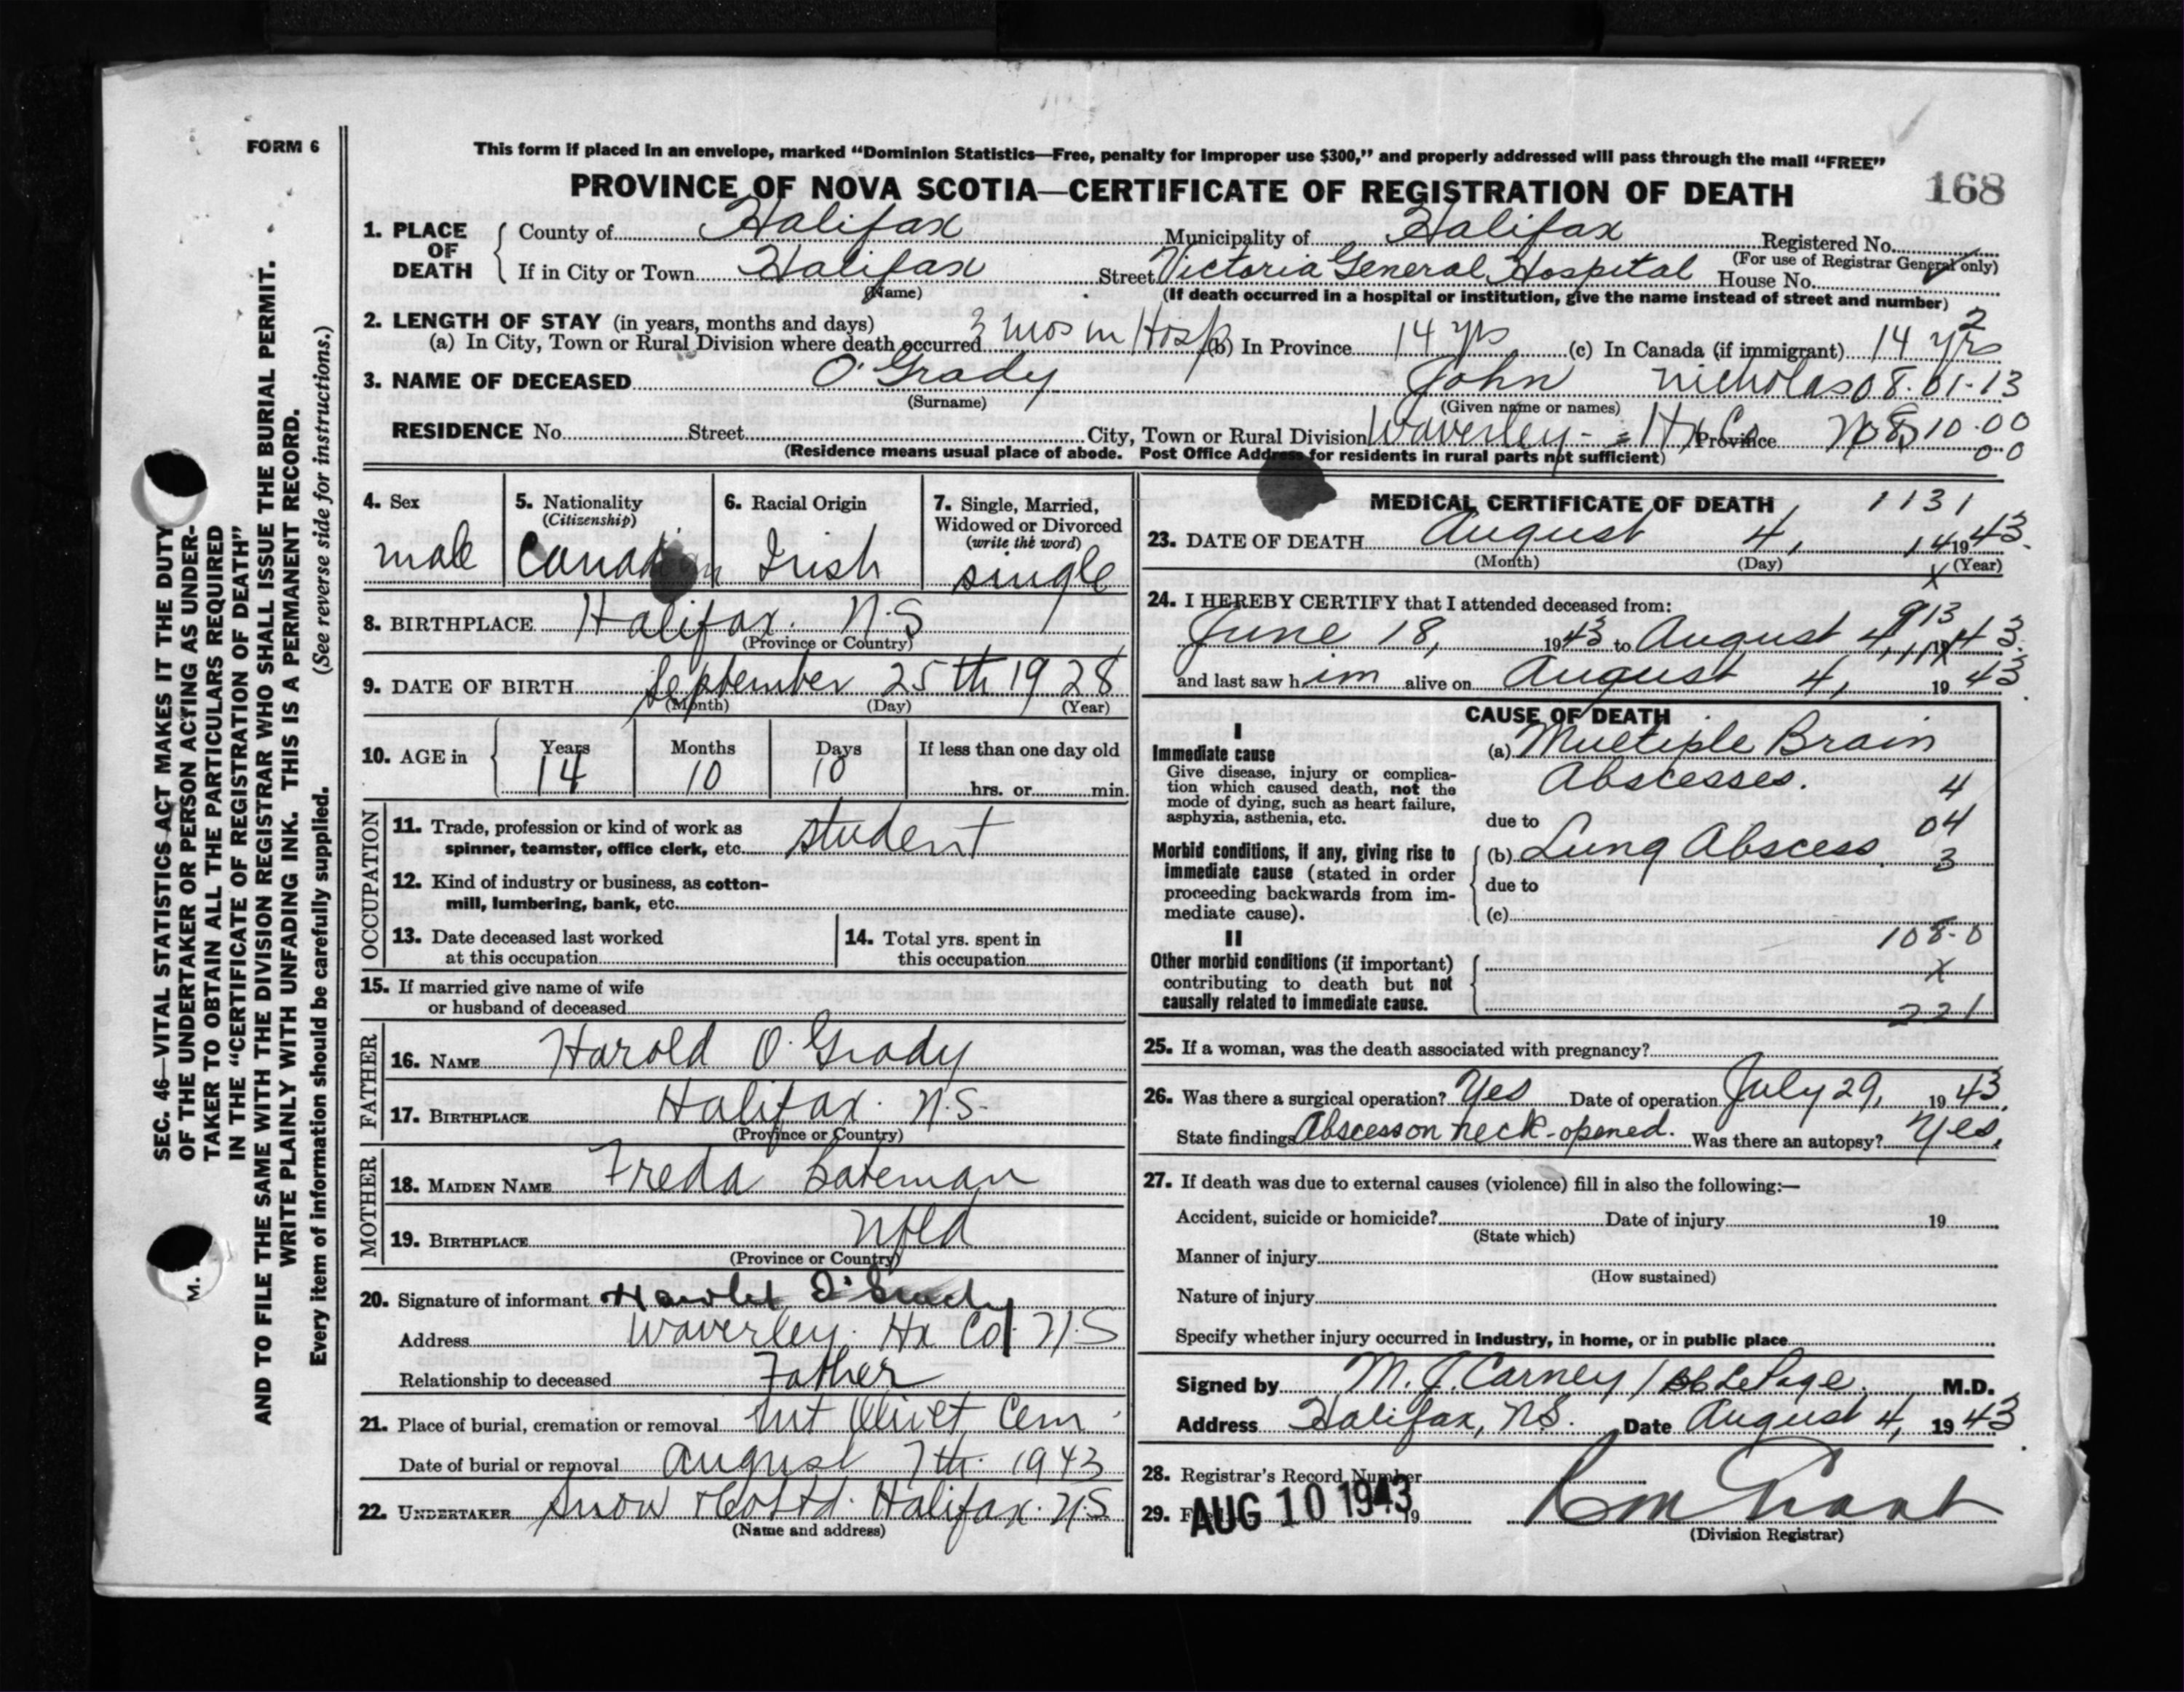 FORM 6
This form if placed in an envelope, marked “Dominion Statistics—Free, penalty for improper use $300,” and properly addressed will pass through the mail “FREE”
PROVINCE OF NOVA SCOTIA—CERTIFICATE OF REGISTRATION OF DEATH 168
1. PLACE OF DEATH
County of Halifax Municipality of Halifax Registered No.
(For use of Registrar General only)
If in City or Town Halifax Street Victoria General Hospital House No.
(Name) (If death occurred in a hospital or institution, give the name instead of street and number)
2. LENGTH OF STAY (in years, months and days) 2
(a) In City, Town or Rural Division where death occurred 3 mos in Hosp (b) In Province 14 yrs (c) In Canada (if immigrant) 14 yrs
3. NAME OF DECEASED O'Grady John Nicholas 08-01-13
(Surname) (Given name or names)
RESIDENCE No. Street City, Town or Rural Division Waverley - Hx Co Province N.S. 10-00
(Residence means usual place of abode. Post Office Address for residents in rural parts not sufficient) 00
4. Sex male
5. Nationality (Citizenship) Canadian
6. Racial Origin Irish
7. Single, Married, Widowed or Divorced (write the word) single
8. BIRTHPLACE Halifax. N.S
(Province or Country)
9. DATE OF BIRTH September 25th 1928
(Month) (Day) (Year)
10. AGE in Years 14 Months 10 Days 10 If less than one day old hrs. or min.
OCCUPATION
11. Trade, profession or kind of work as spinner, teamster, office clerk, etc. student
12. Kind of industry or business, as cotton-mill, lumbering, bank, etc.
13. Date deceased last worked at this occupation
14. Total yrs. spent in this occupation
15. If married give name of wife or husband of deceased
FATHER
16. NAME Harold O'Grady
17. BIRTHPLACE Halifax. N.S.
(Province or Country)
MOTHER
18. MAIDEN NAME Freda Bateman
19. BIRTHPLACE Nfld
(Province or Country)
20. Signature of informant Harold O'Grady
Address Waverley. Hx Co. N.S
Relationship to deceased Father
21. Place of burial, cremation or removal Mt Olivet Cem.
Date of burial or removal August 7th. 1943
22. UNDERTAKER Snow & Co Ltd. Halifax. N.S
(Name and address)
MEDICAL CERTIFICATE OF DEATH 1131
23. DATE OF DEATH August 4, 14 1943.
(Month) (Day) (Year)
X
24. I HEREBY CERTIFY that I attended deceased from:
913
June 18, 1943 to August 4, 1943.
and last saw him alive on August 4, 1943.
CAUSE OF DEATH
I
Immediate cause (a) Multiple Brain
Give disease, injury or complication which caused death, not the mode of dying, such as heart failure, asphyxia, asthenia, etc.
Abscesses. 4
due to 04
Morbid conditions, if any, giving rise to immediate cause (stated in order proceeding backwards from immediate cause).
(b) Lung Abscess. 3
due to
(c)
II 108-0
Other morbid conditions (if important) contributing to death but not causally related to immediate cause.
X
221
25. If a woman, was the death associated with pregnancy?
26. Was there a surgical operation? Yes Date of operation July 29, 1943.
State findings Abscess on neck-opened. Was there an autopsy? Yes.
27. If death was due to external causes (violence) fill in also the following:—
Accident, suicide or homicide? Date of injury 19
(State which)
Manner of injury
(How sustained)
Nature of injury
Specify whether injury occurred in industry, in home, or in public place
Signed by M. J. Carney / LePage. M.D.
Address Halifax, N.S. Date August 4, 1943.
28. Registrar's Record Number
29. AUG 10 1943 19
(Division Registrar)
SEC. 46—VITAL STATISTICS ACT MAKES IT THE DUTY
OF THE UNDERTAKER OR PERSON ACTING AS UNDER-
TAKER TO OBTAIN ALL THE PARTICULARS REQUIRED
IN THE “CERTIFICATE OF REGISTRATION OF DEATH”
AND TO FILE THE SAME WITH THE DIVISION REGISTRAR WHO SHALL ISSUE THE BURIAL PERMIT.
WRITE PLAINLY WITH UNFADING INK. THIS IS A PERMANENT RECORD.
Every item of information should be carefully supplied. (See reverse side for instructions.)
M.